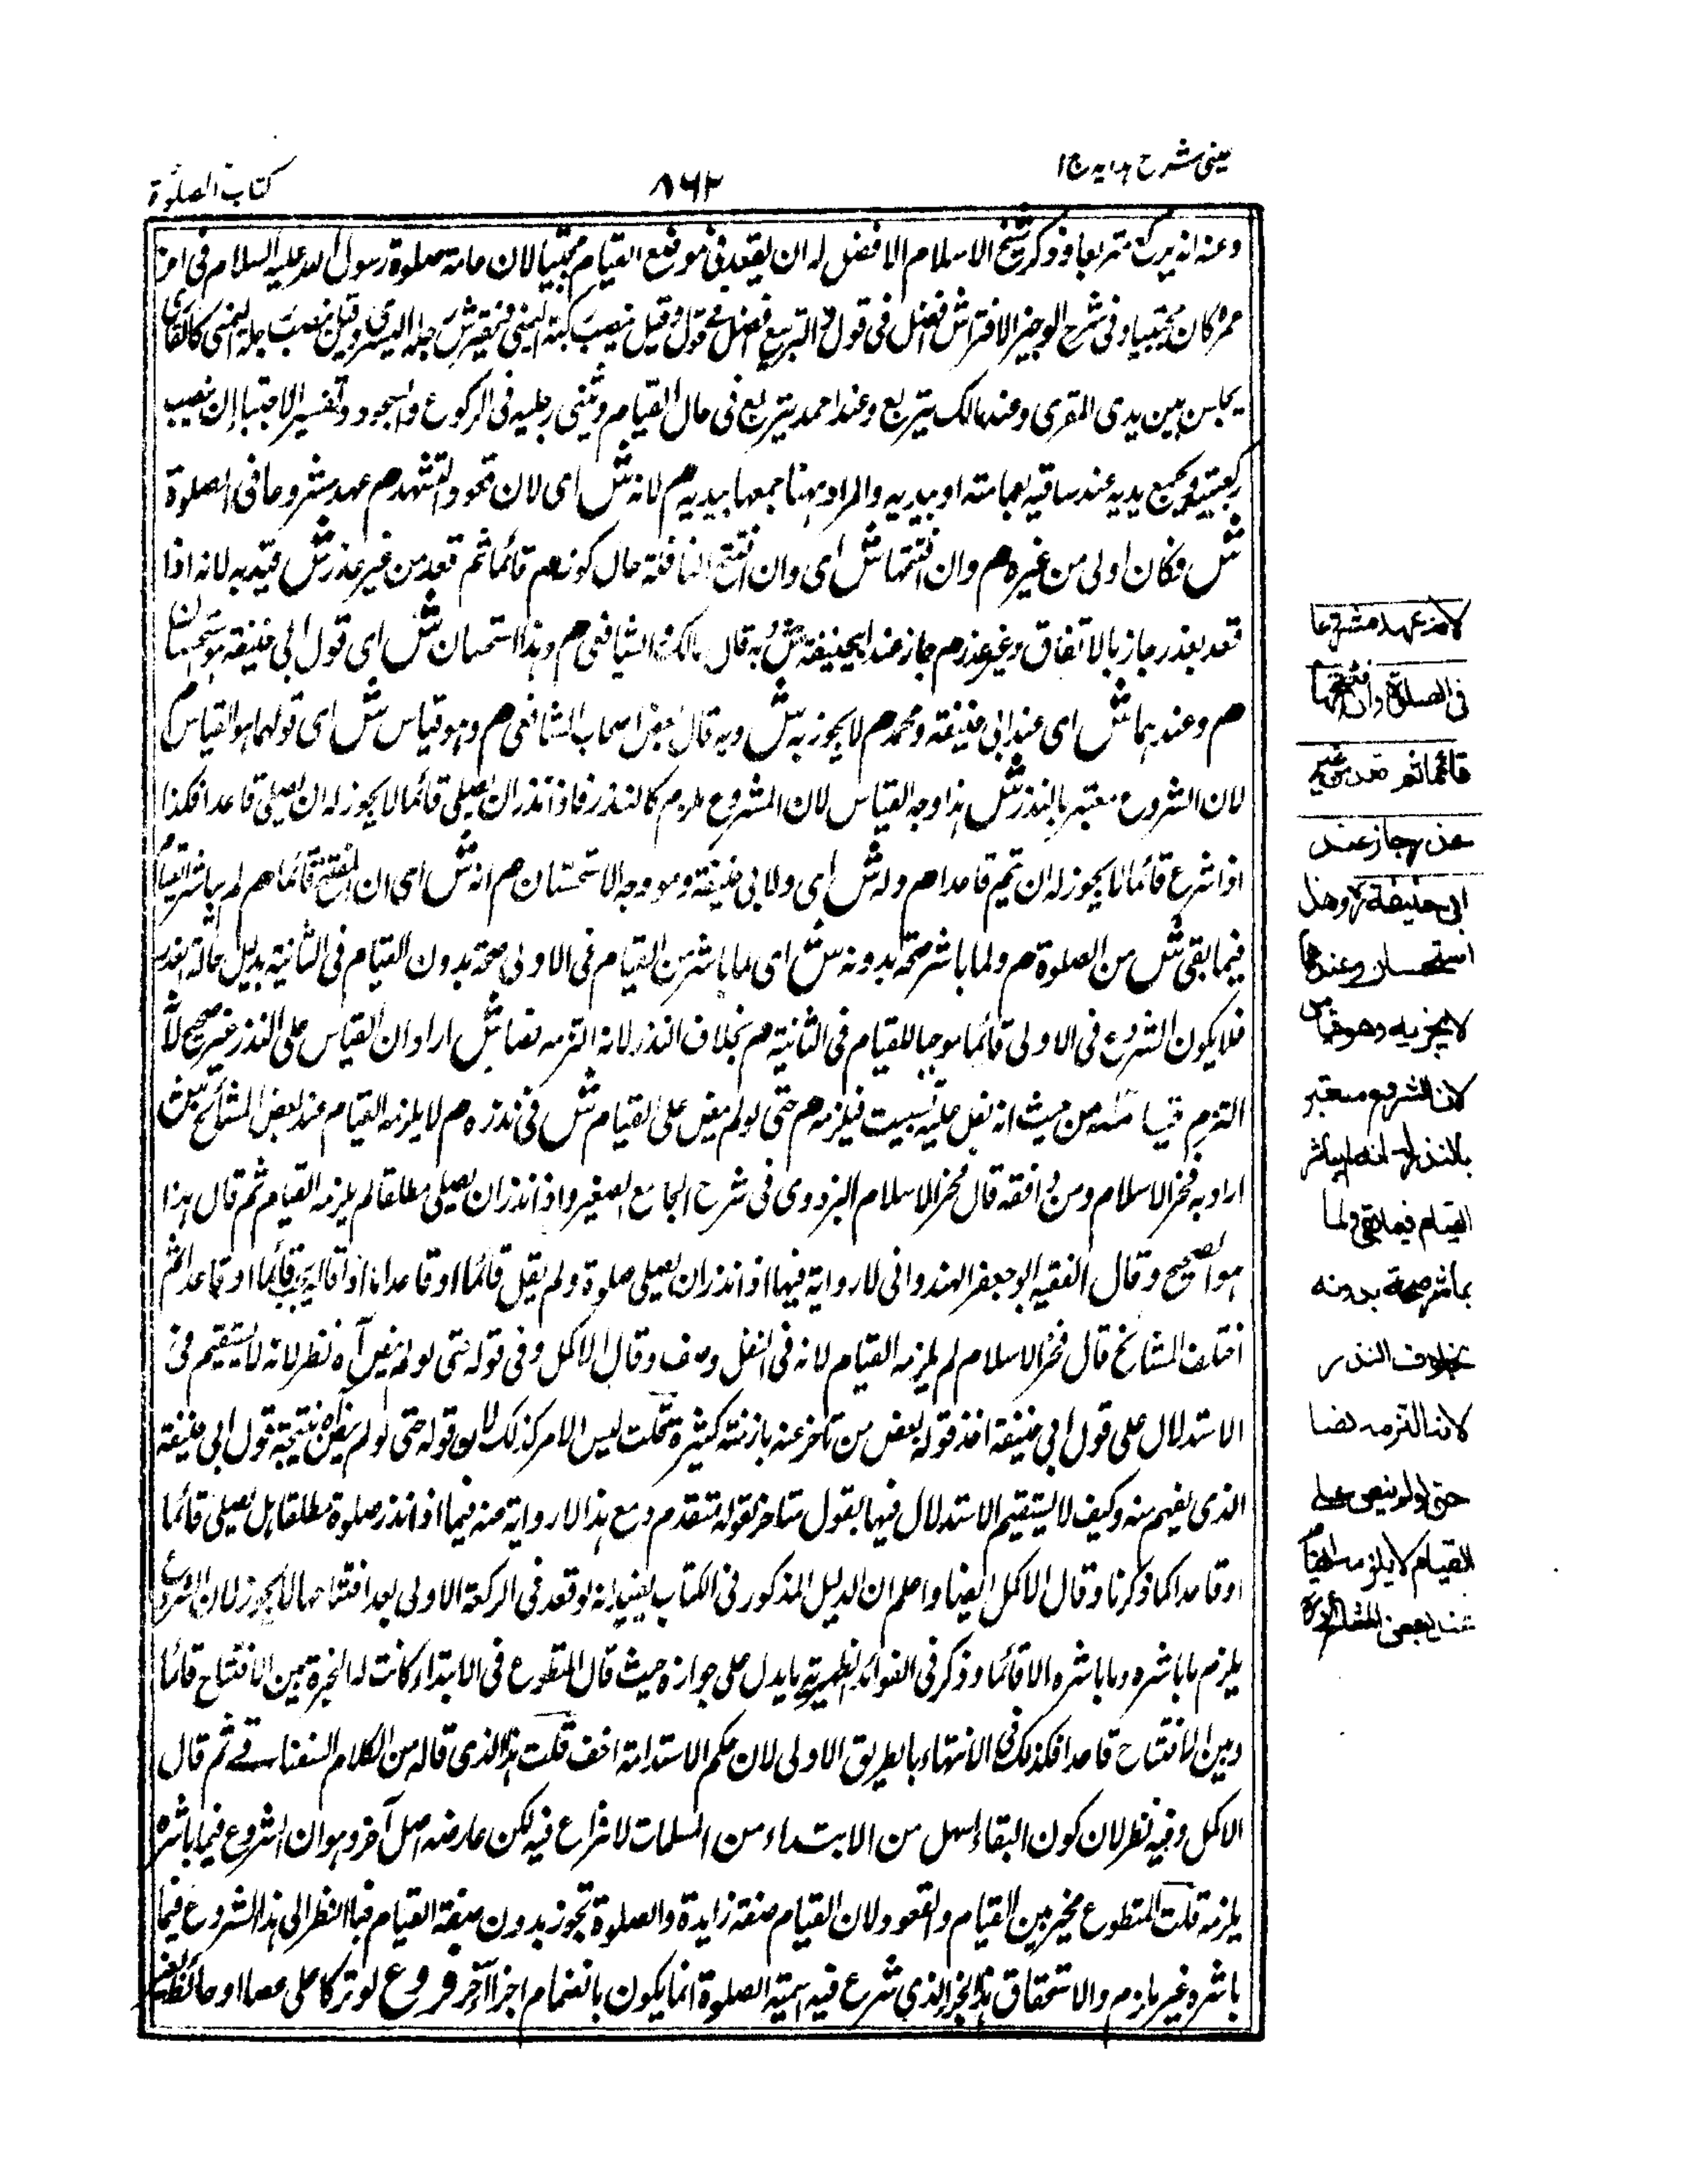 عینی شرح هدایه ج ۱
۸۶۲
كتاب الصلوة
وعنه انه يركع متربعا وذكر شيخ الاسلام الافضل له ان يقعد في موضع القيام محتبيا لان عامة صلوة رسول الله عليه السلام في آخر
عمره كان محتبيا وفي شرح الوجيز الافتراش افضل في قول والتربيع افضل في قول وقيل ينصب ركبته اليمنى ويفترش رجله اليسرى وقيل ينصب رجله اليمنى كالقارى
يجلس بين يدى المقرى وعند مالك يتربع وعند احمد يتربع في حال القيام ويثنى رجليه في الركوع والسجود وتفسير الاحتباء ان ينصب
ركبتيه ويجمع يديه عند ساقيه بعمامته او بيديه والمراد ههنا جمعها بيديه م لانه ش اى لان قعود التشهد م عهد مشروعا في الصلوة
ش فكان اولى من غيره م وان افتتحها ش اى وان افتتح النافلة حال كونه م قائما ثم قعد من غير عذر ش قيد به لانه اذا
قعد بعذر جاز بالاتفاق وبغير عذر م جاز عند ابيحنيفة ش وبه قال مالك والشافعى م وهذا استحسان ش اى قول ابي حنيفة هو استحسان
م وعندهما ش اى عند ابي حنيفة ومحمد م لا يجوز به ش وبه قال بعض اصحاب الشافعى م وهو قياس ش اى قولهما هو القياس م
لان الشروع معتبر بالنذر ش هذا وجه القياس لان المشروع ملزم كالنذر فاذا نذر ان يصلى قائما لا يجوز له ان يصلى قاعدا فكذا
اذا شرع قائما لا يجوز له ان يتم قاعدا م وله ش اى ولابي حنيفة وهو وجه الاستحسان م انه ش اى ان المفتتح قائما م لم يباشر القيام
فيما بقى ش من الصلوة م ولما باشر صحة بدونه ش اى لما باشر من القيام في الاولى صحة بدون القيام في الثانية بدليل حالة العذر
فلا يكون الشروع في الاولى قائما موجبا للقيام في الثانية م بخلاف النذر لانه التزمه نصا ش اراد ان القياس على النذر غير صحيح لأنه
التزم قيامه من حيث انه نص عليه فيلزمه م حتى لو لم ينص على القيام ش في نذره م لا يلزمه القيام عند بعض المشائخ ش
اراد به فخر الاسلام ومن وافقه قال فخر الاسلام البزدوى في شرح الجامع الصغير واذا نذر ان يصلى مطلقا لم يلزمه القيام ثم قال هذا
هو الصحيح وقال الفقيه ابو جعفر الهندوانى لا رواية فيها اذا نذر ان يصلى صلوة ولم يقل قائما او قاعدا قائما او قاعدا ثم
اختلف المشائخ قال فخر الاسلام لم يلزمه القيام لانه في النفل وصف وقال الاكمل وفي قوله حتى لو لم ينص آه نظر لانه لا يستقيم في
الاستدلال على قول ابي حنيفة اخذ قوله بعض من تأخر عنه بازمنة كثيرة قلت ليس الامر كذلك لان قوله حتى لو لم ينص آه نتيجة قول ابي حنيفة
الذى يفهم منه وكيف لا يستقيم الاستدلال فيها بقول متأخر لقوله متقدم ومع هذا لا رواية عنه فيما اذا نذر صلوة مطلقا هل يصلى قائما
او قاعدا كما ذكرنا وقال الاكمل ايضا واعلم ان الدليل المذكور في الكتاب يفيد انه لو قعد في الركعة الاولى بعد افتتاحها لا يجوز لان الشروع
يلزم ما باشره وما باشره الا قائما وذكر في الفوائد الظهيرية ما يدل على جوازه حيث قال المتطوع في الابتداء كانت له الخيرة بين الافتتاح قائما
وبين الافتتاح قاعدا فكذلك في الانتهاء بالطريق الاولى لان حكم الاستدامة اخف قلت هذا الذى قاله من الكلام السغناقي ثم قال
الاكمل وفيه نظر لان كون البقاء اسهل من الابتداء من المسلمات لا نزاع فيه لكن عارضه اصل آخر وهو ان الشروع فيما باشره
يلزمه قلت المتطوع مخير بين القيام والقعود ولان القيام صفة زايدة والصلوة تجوز بدون صفة القيام فبالنظر الى هذا الشروع فيما
باشره غير ملزم والاستحقاق هذا الجزء الذى شرع فيه اسمية الصلوة انما يكون بانضمام اجزاء آخر فروع لو توكأ على عصا او حائط
لانه عهد مشروعا
في الصلوة وان افتتحها
قائما ثم قعد من غير
عذر جاز عند
ابي حنيفة رح وهذا
استحسان وعندهما
لا يجزيه وهو قياس
لان الشروع معتبر
بالنذر له انه لم يباشر
القيام فيما بقى ولما
باشر صحة بدونه
بخلاف النذر
لانه التزمه نصا
حتى لو لم ينص على
القيام لا يلزمه القيام
عند بعض المشائخ رح